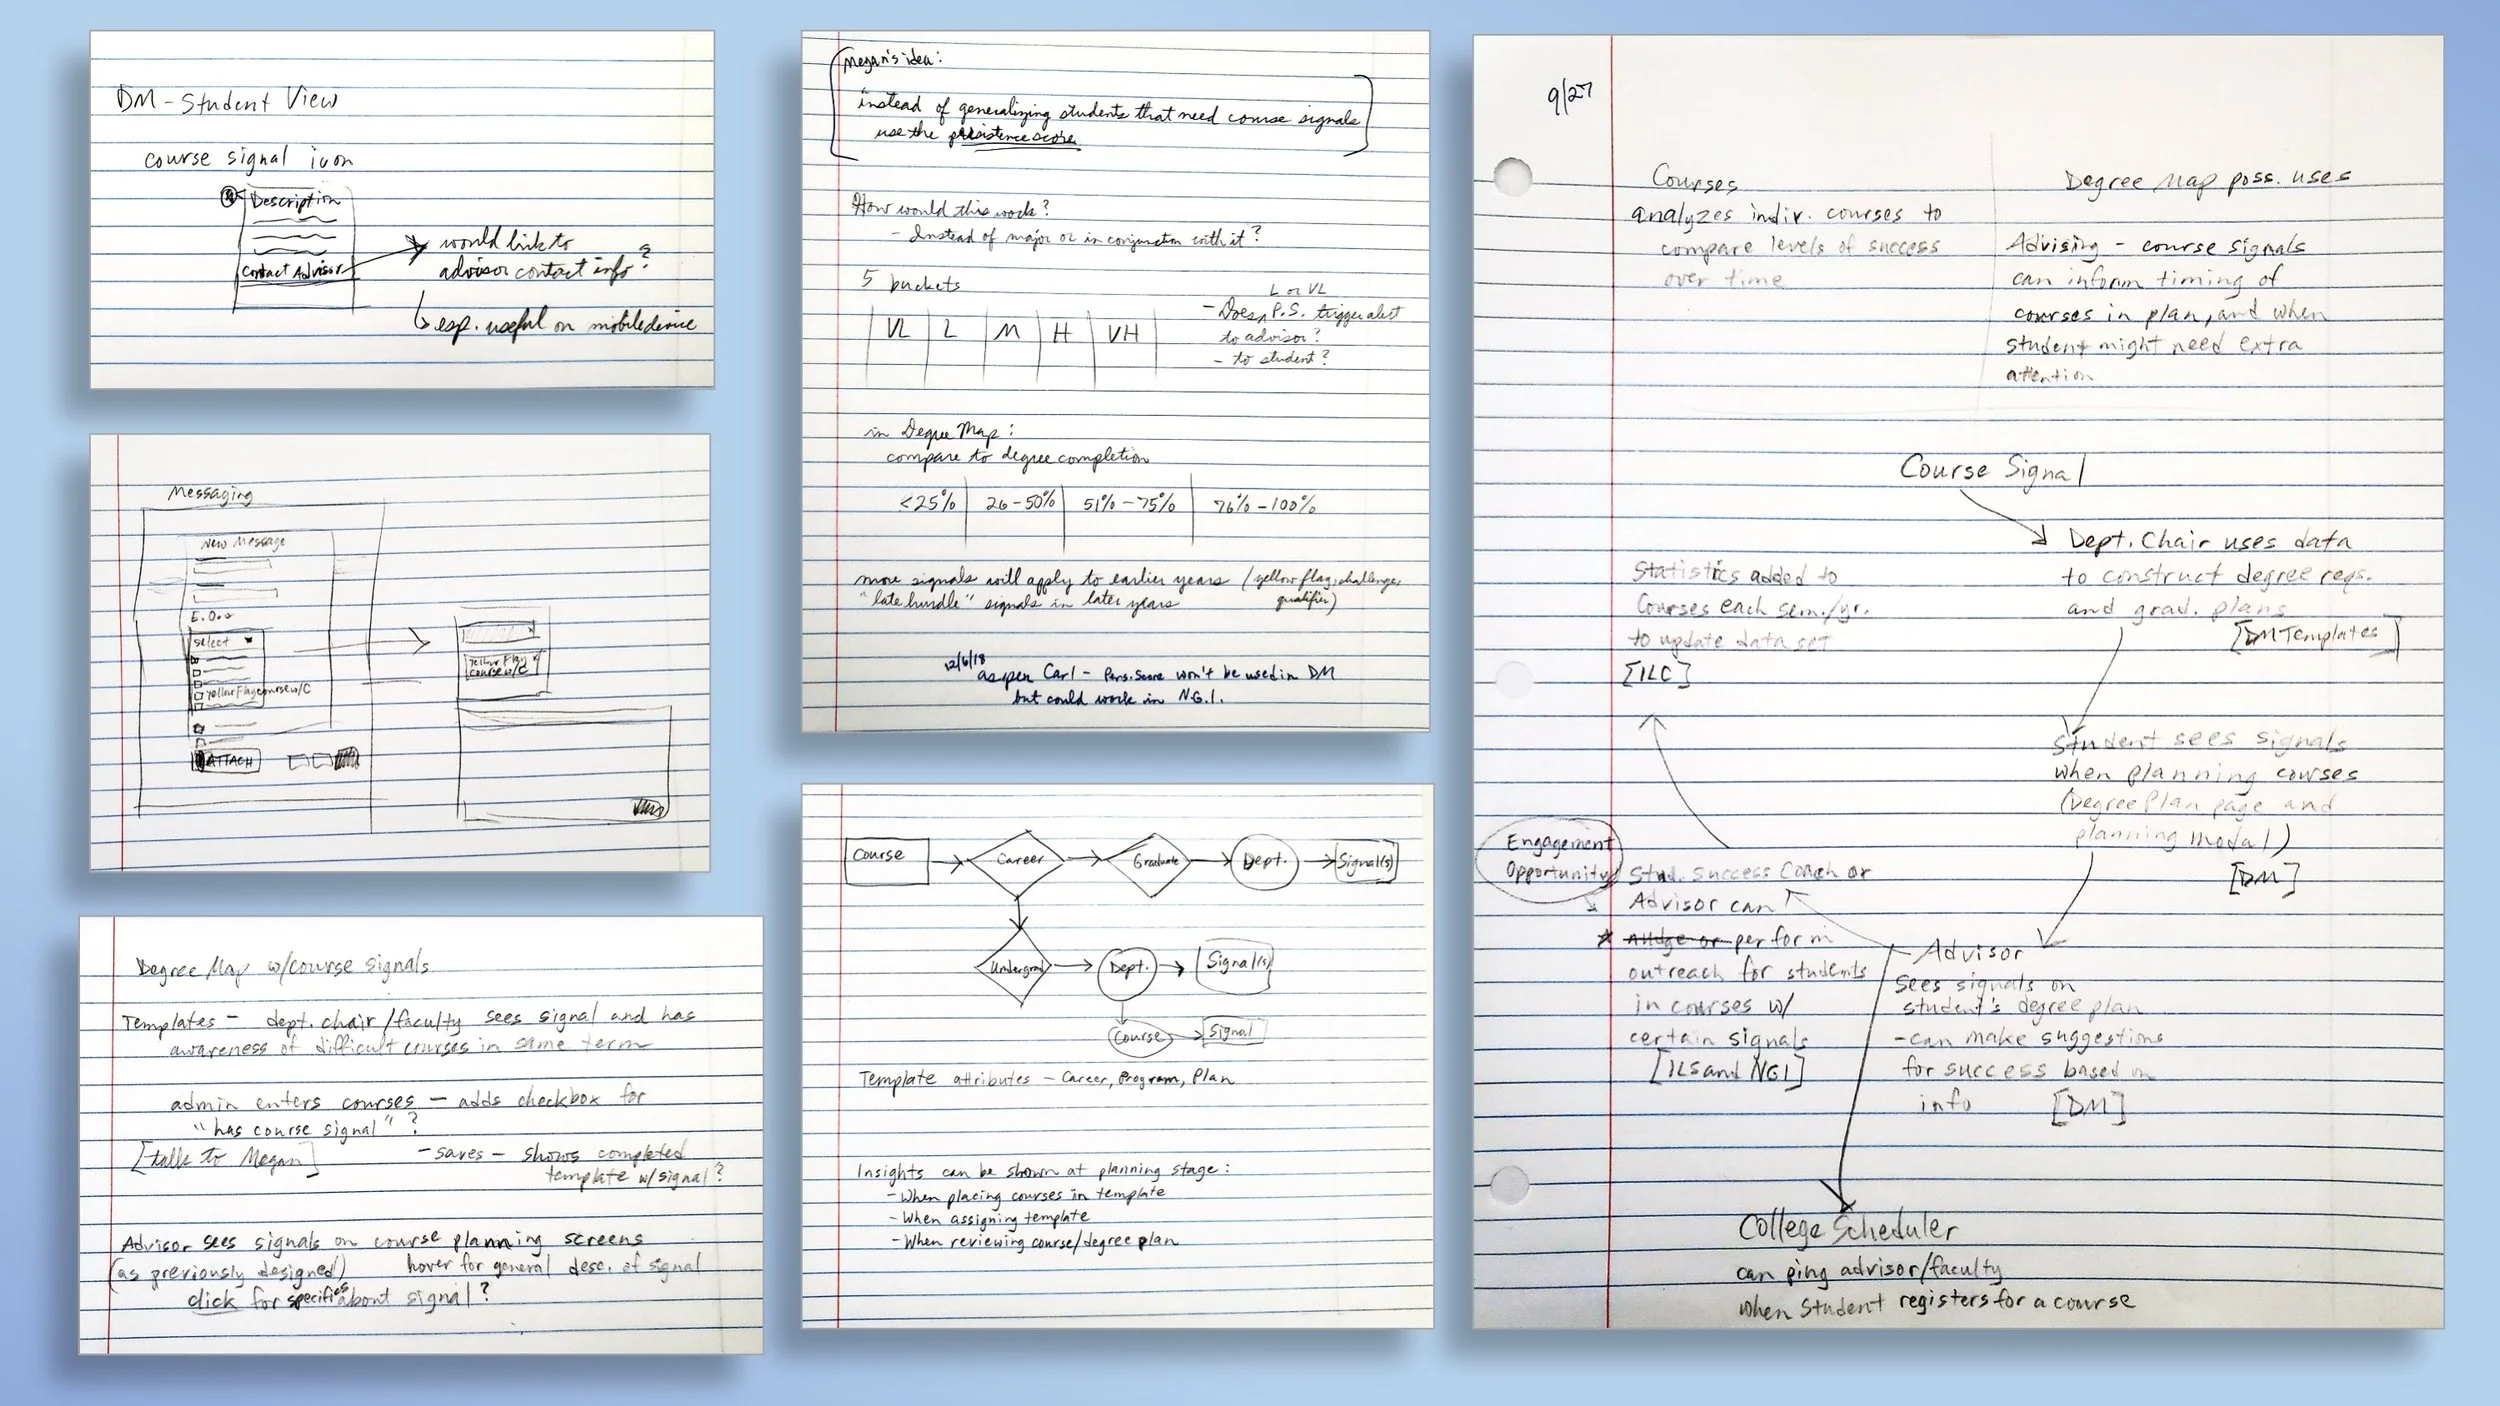 DM - Student View
course signal icon
Description
Contact Advisor
would link to
advisor contact info?
esp. useful on mobile device
Messaging
New Message
E.O.
Select
Yellow Flag course w/C
ATTACH
Yellow Flag
course w/C
Degree Map w/course signals
Templates - dept. chair/faculty sees signal and has
awareness of difficult courses in same term
admin enters courses - adds checkbox for
"has course signal"?
[talk to Megan]
- saves - shows completed
template w/signal?
Advisor sees signals on course planning screens
(as previously designed) hover for general desc. of signal
click for specifics about signal?
Megan's idea:
instead of generalizing students that need course signals
use the persistence score
How would this work?
- Instead of major or in conjunction with it?
5 buckets
VL L M H VH
L or VL
- Does P.S. trigger alert
to advisor?
- to student?
in Degree Map:
compare to degree completion
<25% 26-50% 51%-75% 76%-100%
more signals will apply to earlier years (yellow flag, challenge,
qualifier)
"late hurdle" signals in later years
12/6/18
as per Carl - Pers. Score won't be used in DM
but could work in N.G.I.
Course Career Graduate Dept. Signal(s)
Undergrad Dept. Signal(s)
Course Signal
Template attributes - Career, Program, Plan
Insights can be shown at planning stage:
- When placing courses in template
- When assigning template
- When reviewing course/degree plan
9/27
Courses
analyzes indiv. courses to
compare levels of success
over time
Degree Map poss. uses
Advising - course signals
can inform timing of
courses in plan, and when
student might need extra
attention
Course Signal
Dept. Chair uses data
to construct degree reqs.
and grad. plans
[DM Templates]
Statistics added to
Courses each sem./yr.
to update data set
[ILC]
Student sees signals
when planning courses
(Degree Plan page and
planning modal)
[DM]
Engagement
Opportunity
Stud. Success Coach or
Advisor can
* nudge or perform
outreach for students
in courses w/
certain signals
[ILS and NGI]
Advisor
Sees signals on
student's degree plan
- can make suggestions
for success based on
info [DM]
College Scheduler
can ping advisor/faculty
when student registers for a course